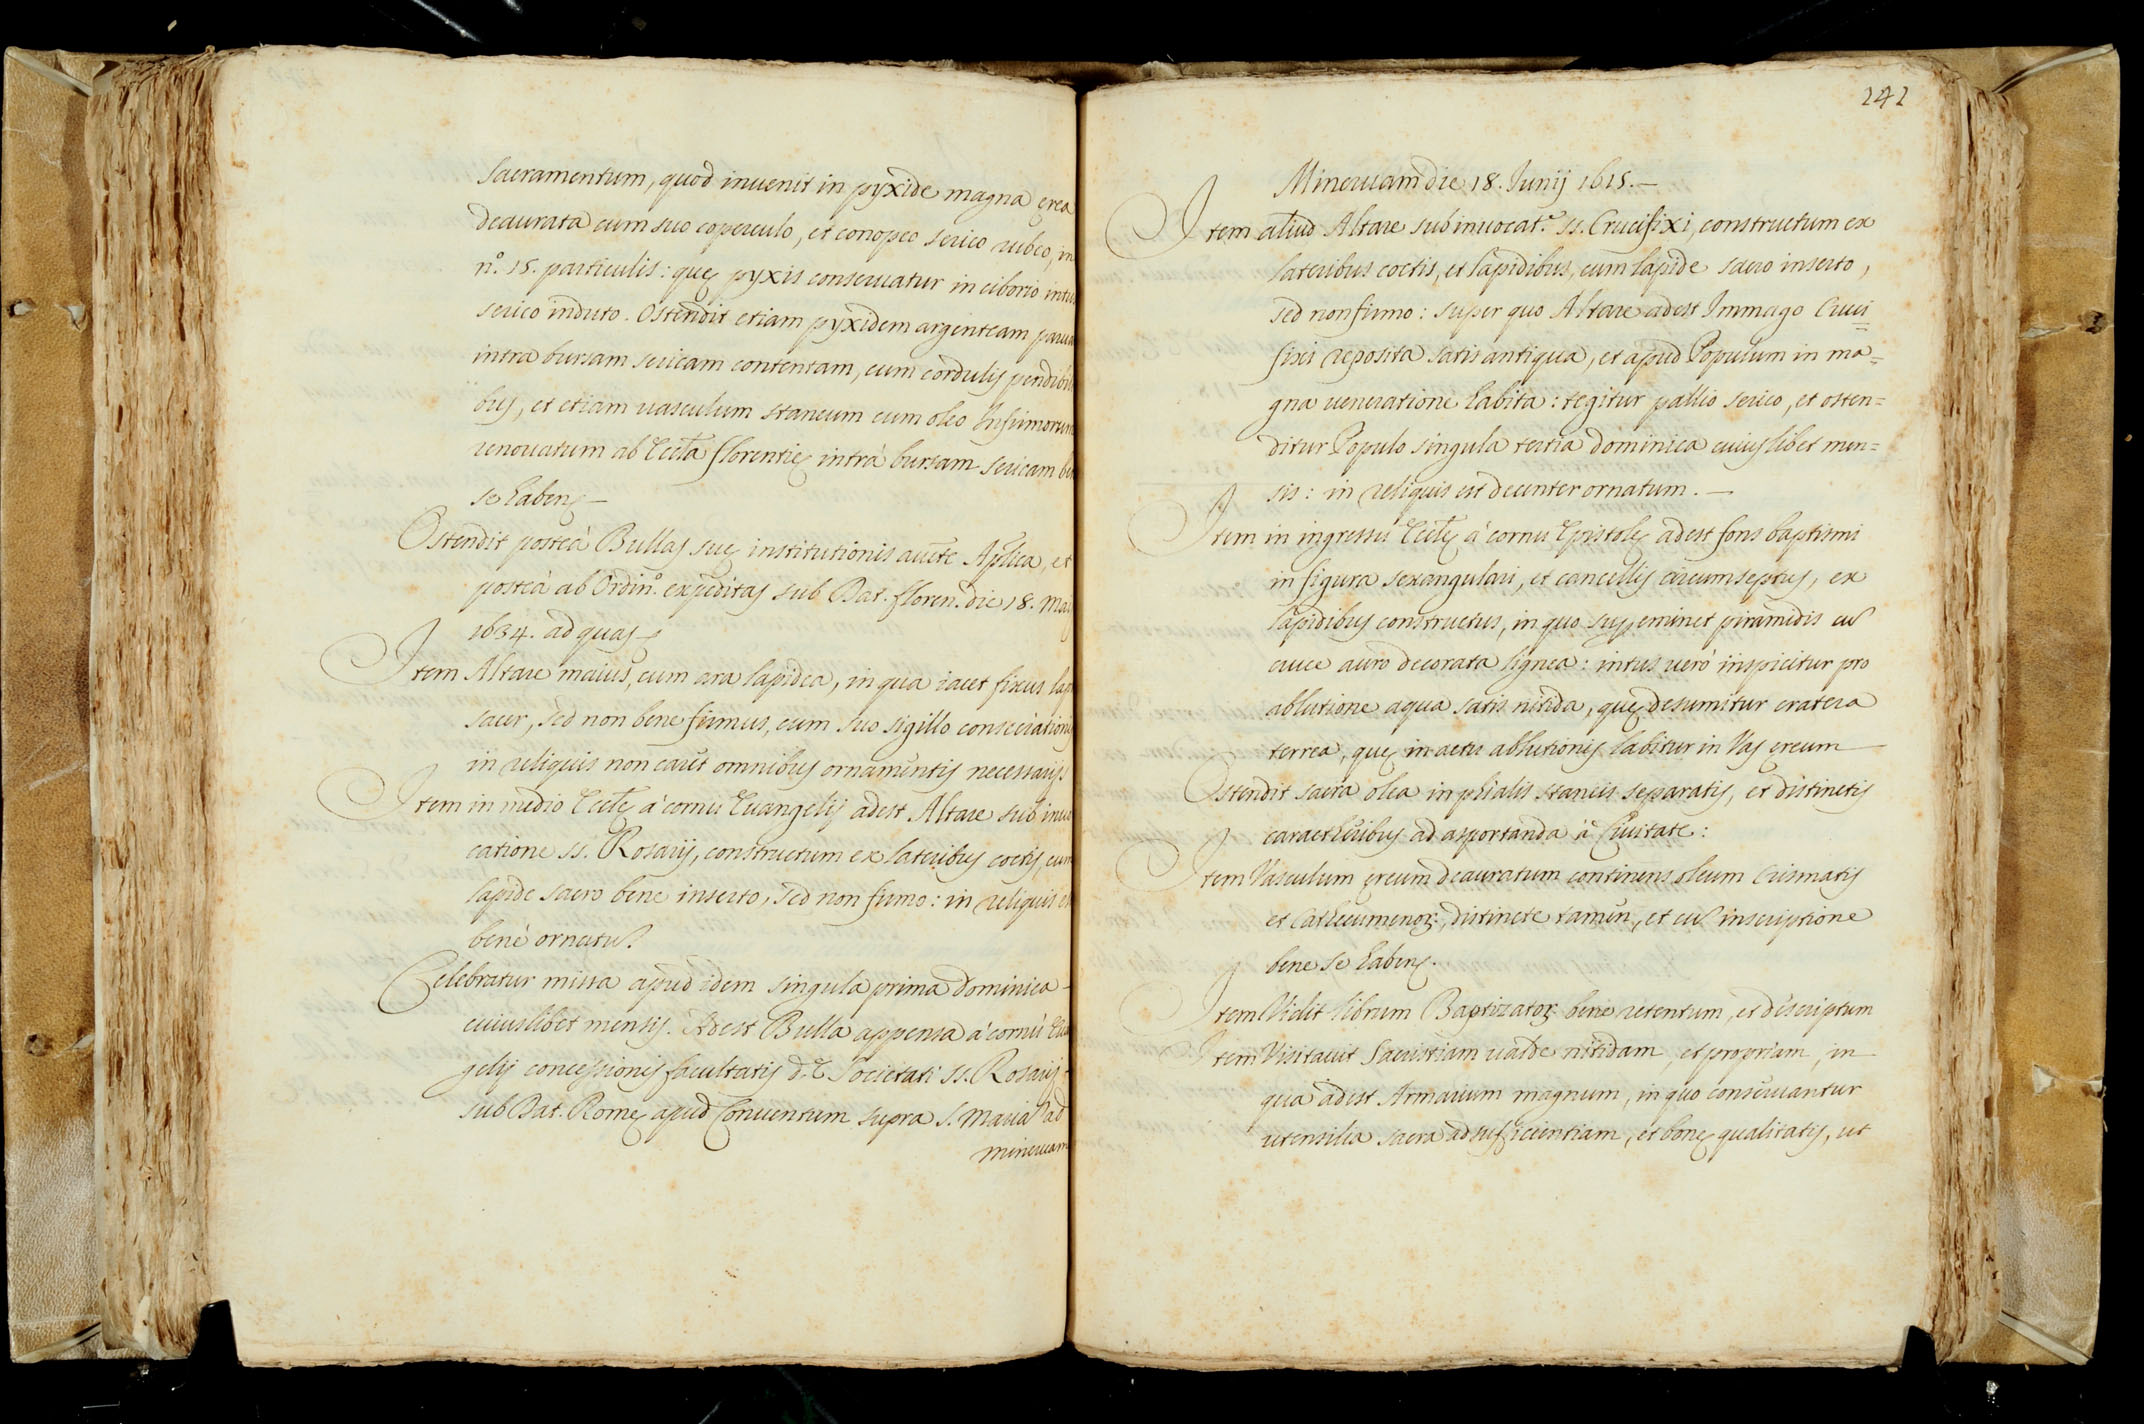 Sacramentum, quod inuenit in pyxide magna ęrea
deaurata cum suo coperculo, et conopeo serico rubeo, in
n.º 15. particulis: quę pyxis conseruatur in ciborio intus
serico induto. Ostendit etiam pyxidem argenteam paruam
intra bursam sericam contentam, cum cordulis pendibili
bus, et etiam uasculum staneum cum oleo Infirmorum
renouatum ab Eccła florentię intrà bursam sericam bene
se habens
Ostendit posteà Bullas suę institutionis aucte Aplica, et
posteà ab Ordin.º expeditas sub Dat. floren. die 18. Maij
1634. ad quas
Item Altare maius, cum ara lapidea, in qua iacet fixus lapis
sacer, sed non bene firmus, cum suo sigillo consecrationis
in reliquis non caret omnibus ornamentis necessarijs
Item in medio Eccłę à cornu Euangelij adest Altare sub inuo
catione SS. Rosarij, constructum ex lateribus coctis, cum
lapide sacro bene inserto, sed non firmo: in reliquis est
benè ornatu
Celebratur missa apud idem singula prima dominica
cuiuslibet mensis. Adest Bulla appensa à cornù Euan
gelij concessionis facultatis d. Societati SS. Rosarij
sub Dat. Romę apud Conuentum supra S. Maria ad
mineruam
242
Mineruam die 18. Junij 1615.
Item aliud Altare sub inuocat.e SS. Crucifixi, constructum ex
lateribus coctis, et lapidibus, cum lapide sacro inserto,
sed non firmo: super quo Altare adest Immago Cruci=
fixi reposita satis antiqua, et apud Populum in ma=
gna ueneratione habita: tegitur pallio serico, et osten=
ditur Populo singula tertia dominica cuiuslibet men=
sis: in reliquis est decenter ornatum.
Item in ingressu Eccłę à cornu Epistolę adest fons baptismi
in figura sexangulari, et cancellis circumseptus, ex
lapidibus constructus, in quo supereminet piramidis cu
cruce auro decorata lignea: intus uerò inspicitur pro
ablutione aqua satis nitida, quę desumitur cratera
terrea, quę in actu ablutionis labitur in Vas ęreum
Ostendit sacra olea in phialis staneis separatis, et distinctis
caractheribus ad asportanda à Ciuitate:
Item Vasculum ęreum deauratum continens oleum Crismatis
et Cathecumenoꝝ, distincte tamen, et cu inscriptione
bene se habens.
Item Vidit librum Baptizatoꝝ bene retentum, et discriptum
Item Visitauit Sacristiam ualde nitidam, et propriam, in
qua adest Armarium magnum, in quo conseruantur
utensilia sacra ad sufficientiam, et bonę qualitatis, ut